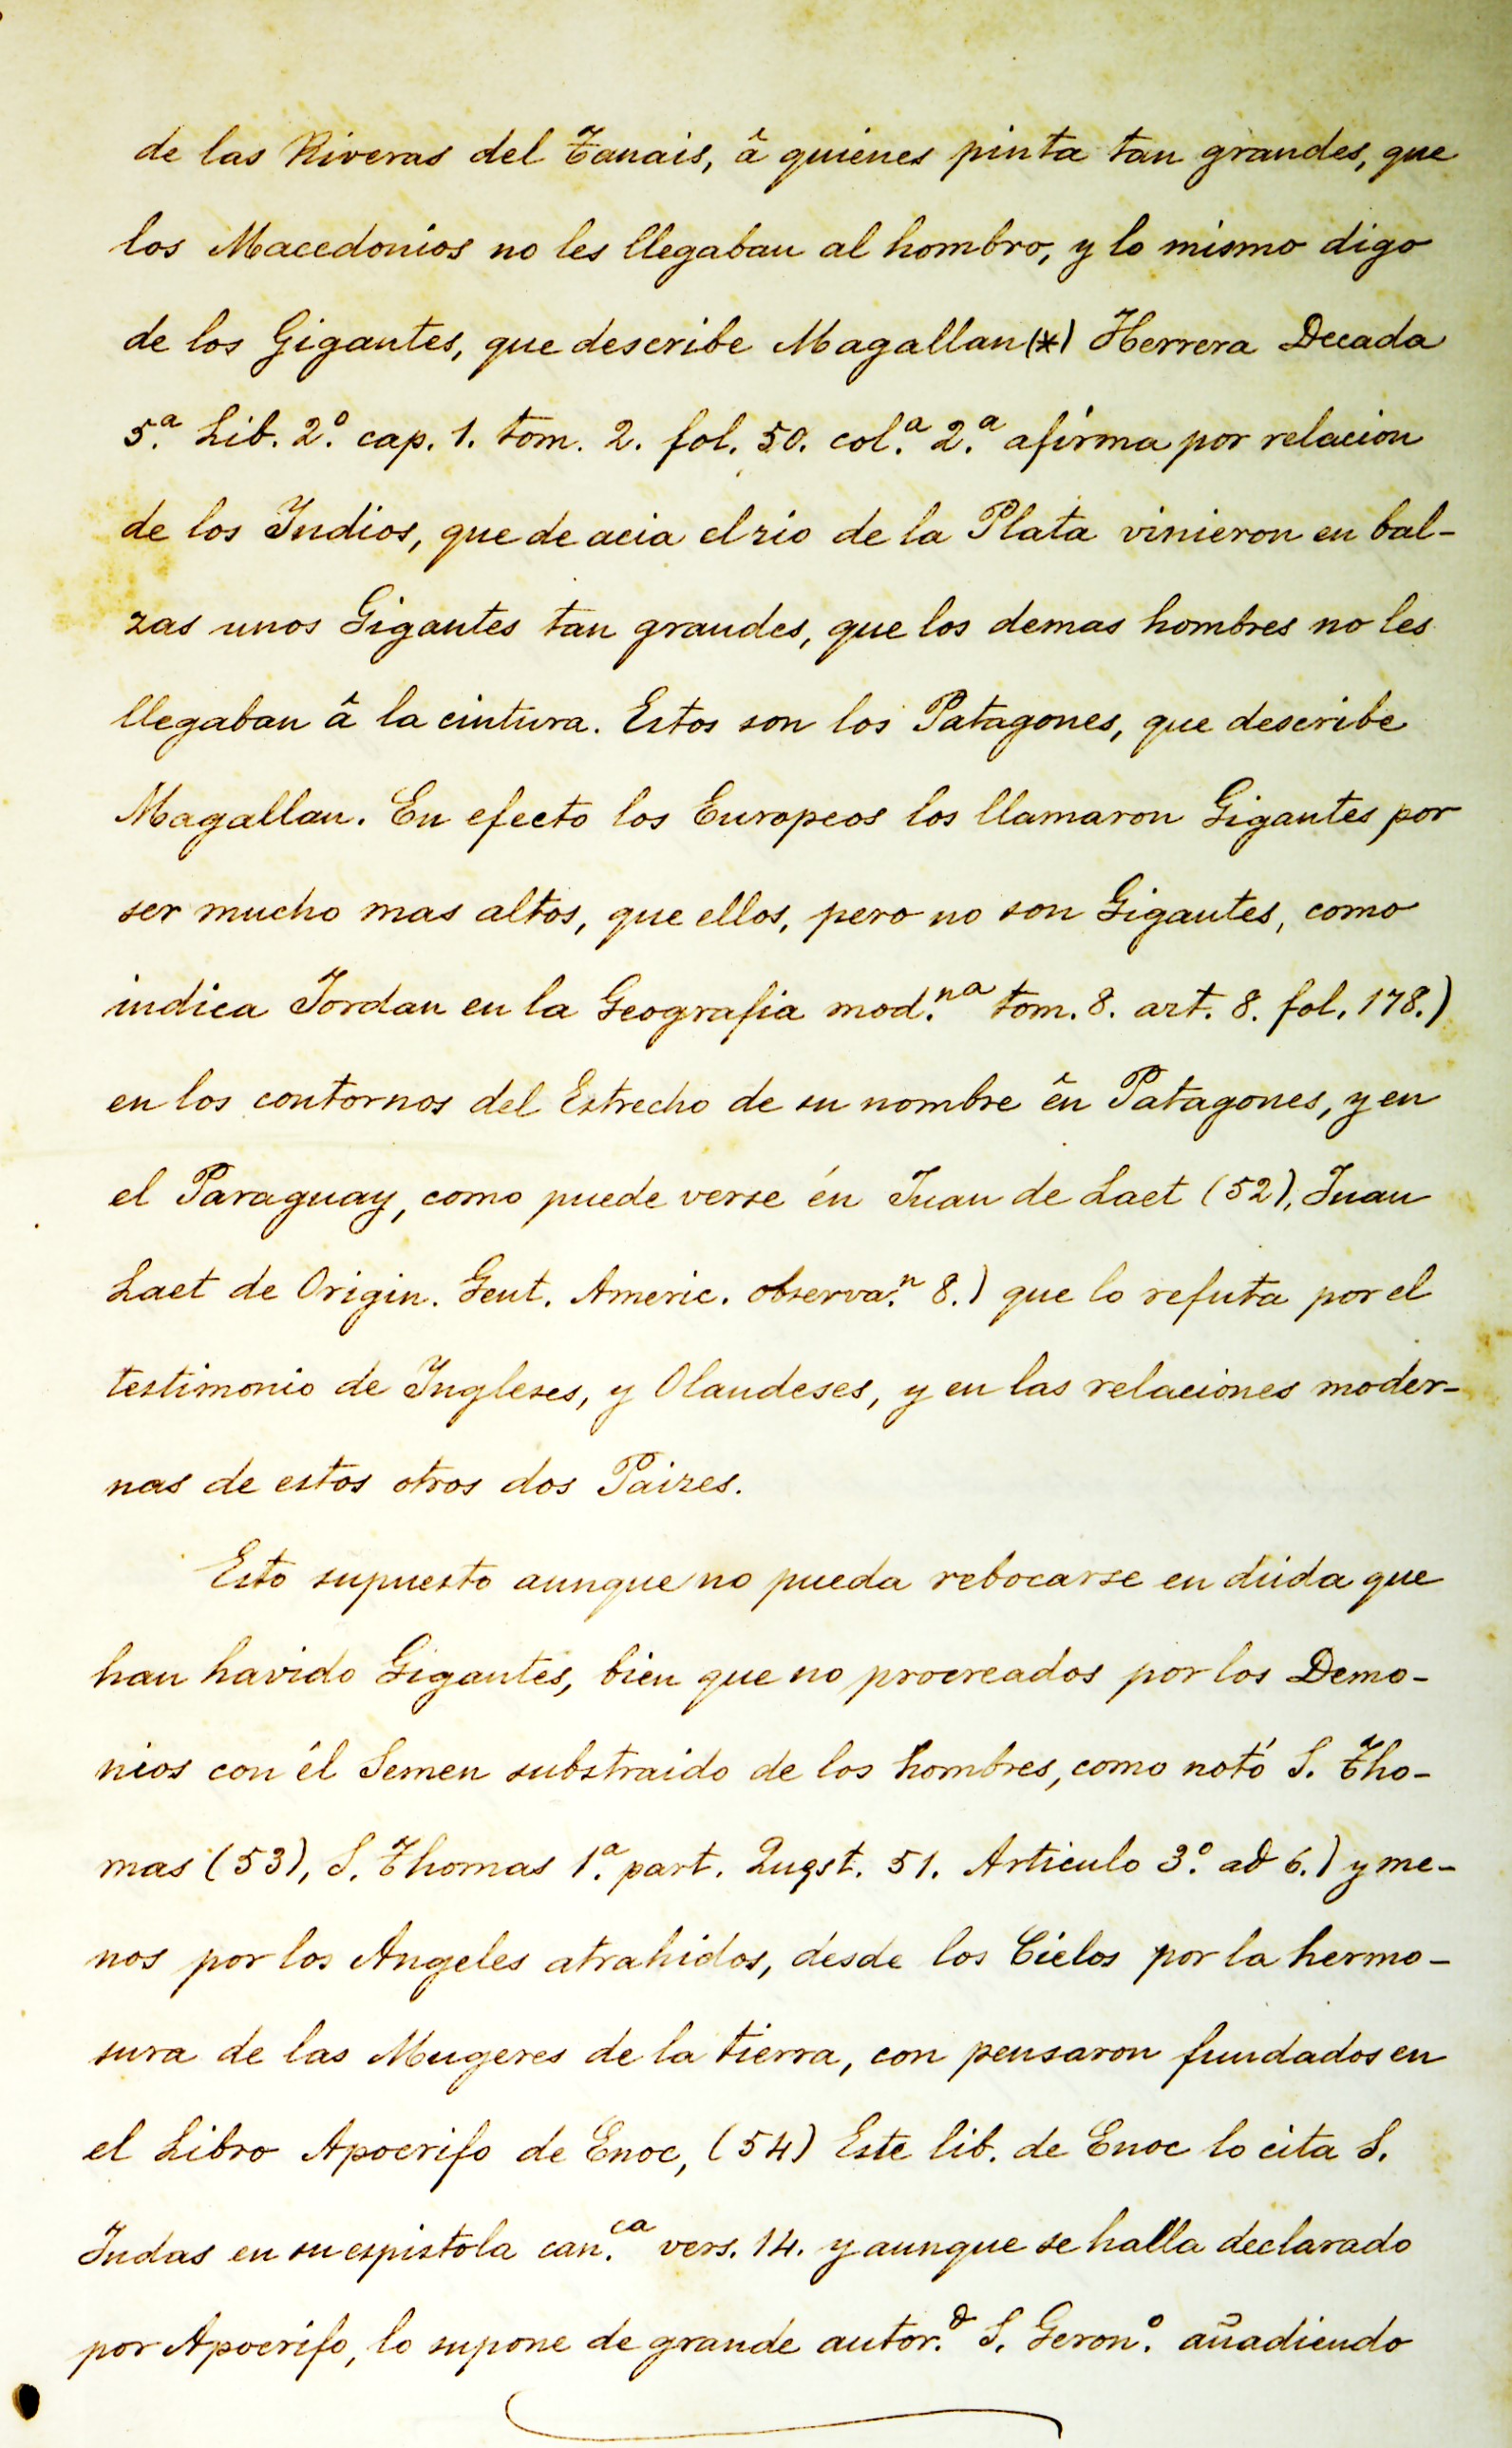 de las Riveras del Tanais, â quienes pinta tan grandes, que
los Macedonios no les llegaban al hombro, y lo mismo digo
de los Gigantes, que describe Magallan (*) Herrera Decada
5.ª Lib. 2.º cap. 1. tom. 2. fol. 50. col.ª 2.ª afirma por relacion
de los Indios, que de acia el rio de la Plata vinieron en bal-
zas unos Gigantes tan grandes, que los demas hombres no les
llegaban â la cintura. Estos son los Patagones, que describe
Magallan. En efecto los Europeos los llamaron Gigantes por
ser mucho mas altos, que ellos, pero no son Gigantes, como
indica Jordan en la Geografia mod.ⁿᵃ tom. 8. art. 8. fol. 178.)
en los contornos del Estrecho de su nombre ên Patagones, y en
el Paraguay, como puede verse én Juan de Laet (52), Juan
Laet de Origin. Gent. Americ. observa.ⁿ 8.) que lo refuta por el
testimonio de Ingleses, y Olandeses, y en las relaciones moder-
nas de estos otros dos Paizes.
Esto supuesto aunque no pueda rebocarse en duda que
han havido Gigantes, bien que no procreados por los Demo-
nios con él Semen substraido de los hombres, como notó S. Tho-
mas (53), S. Thomas 1.ª part. Quęst. 51. Articulo 3.º ad 6.) y me-
nos por los Angeles atrahidos, desde los Cielos por la hermo-
sura de las Mugeres de la tierra, con pensaron fundados en
el Libro Apocrifo de Enoc, (54) Este lib. de Enoc lo cita S.
Judas en su espistola can.ᶜᵃ vers. 14. y aunque se halla declarado
por Apocrifo, lo supone de grande autor.ᵈ S. Geron.º añadiendo